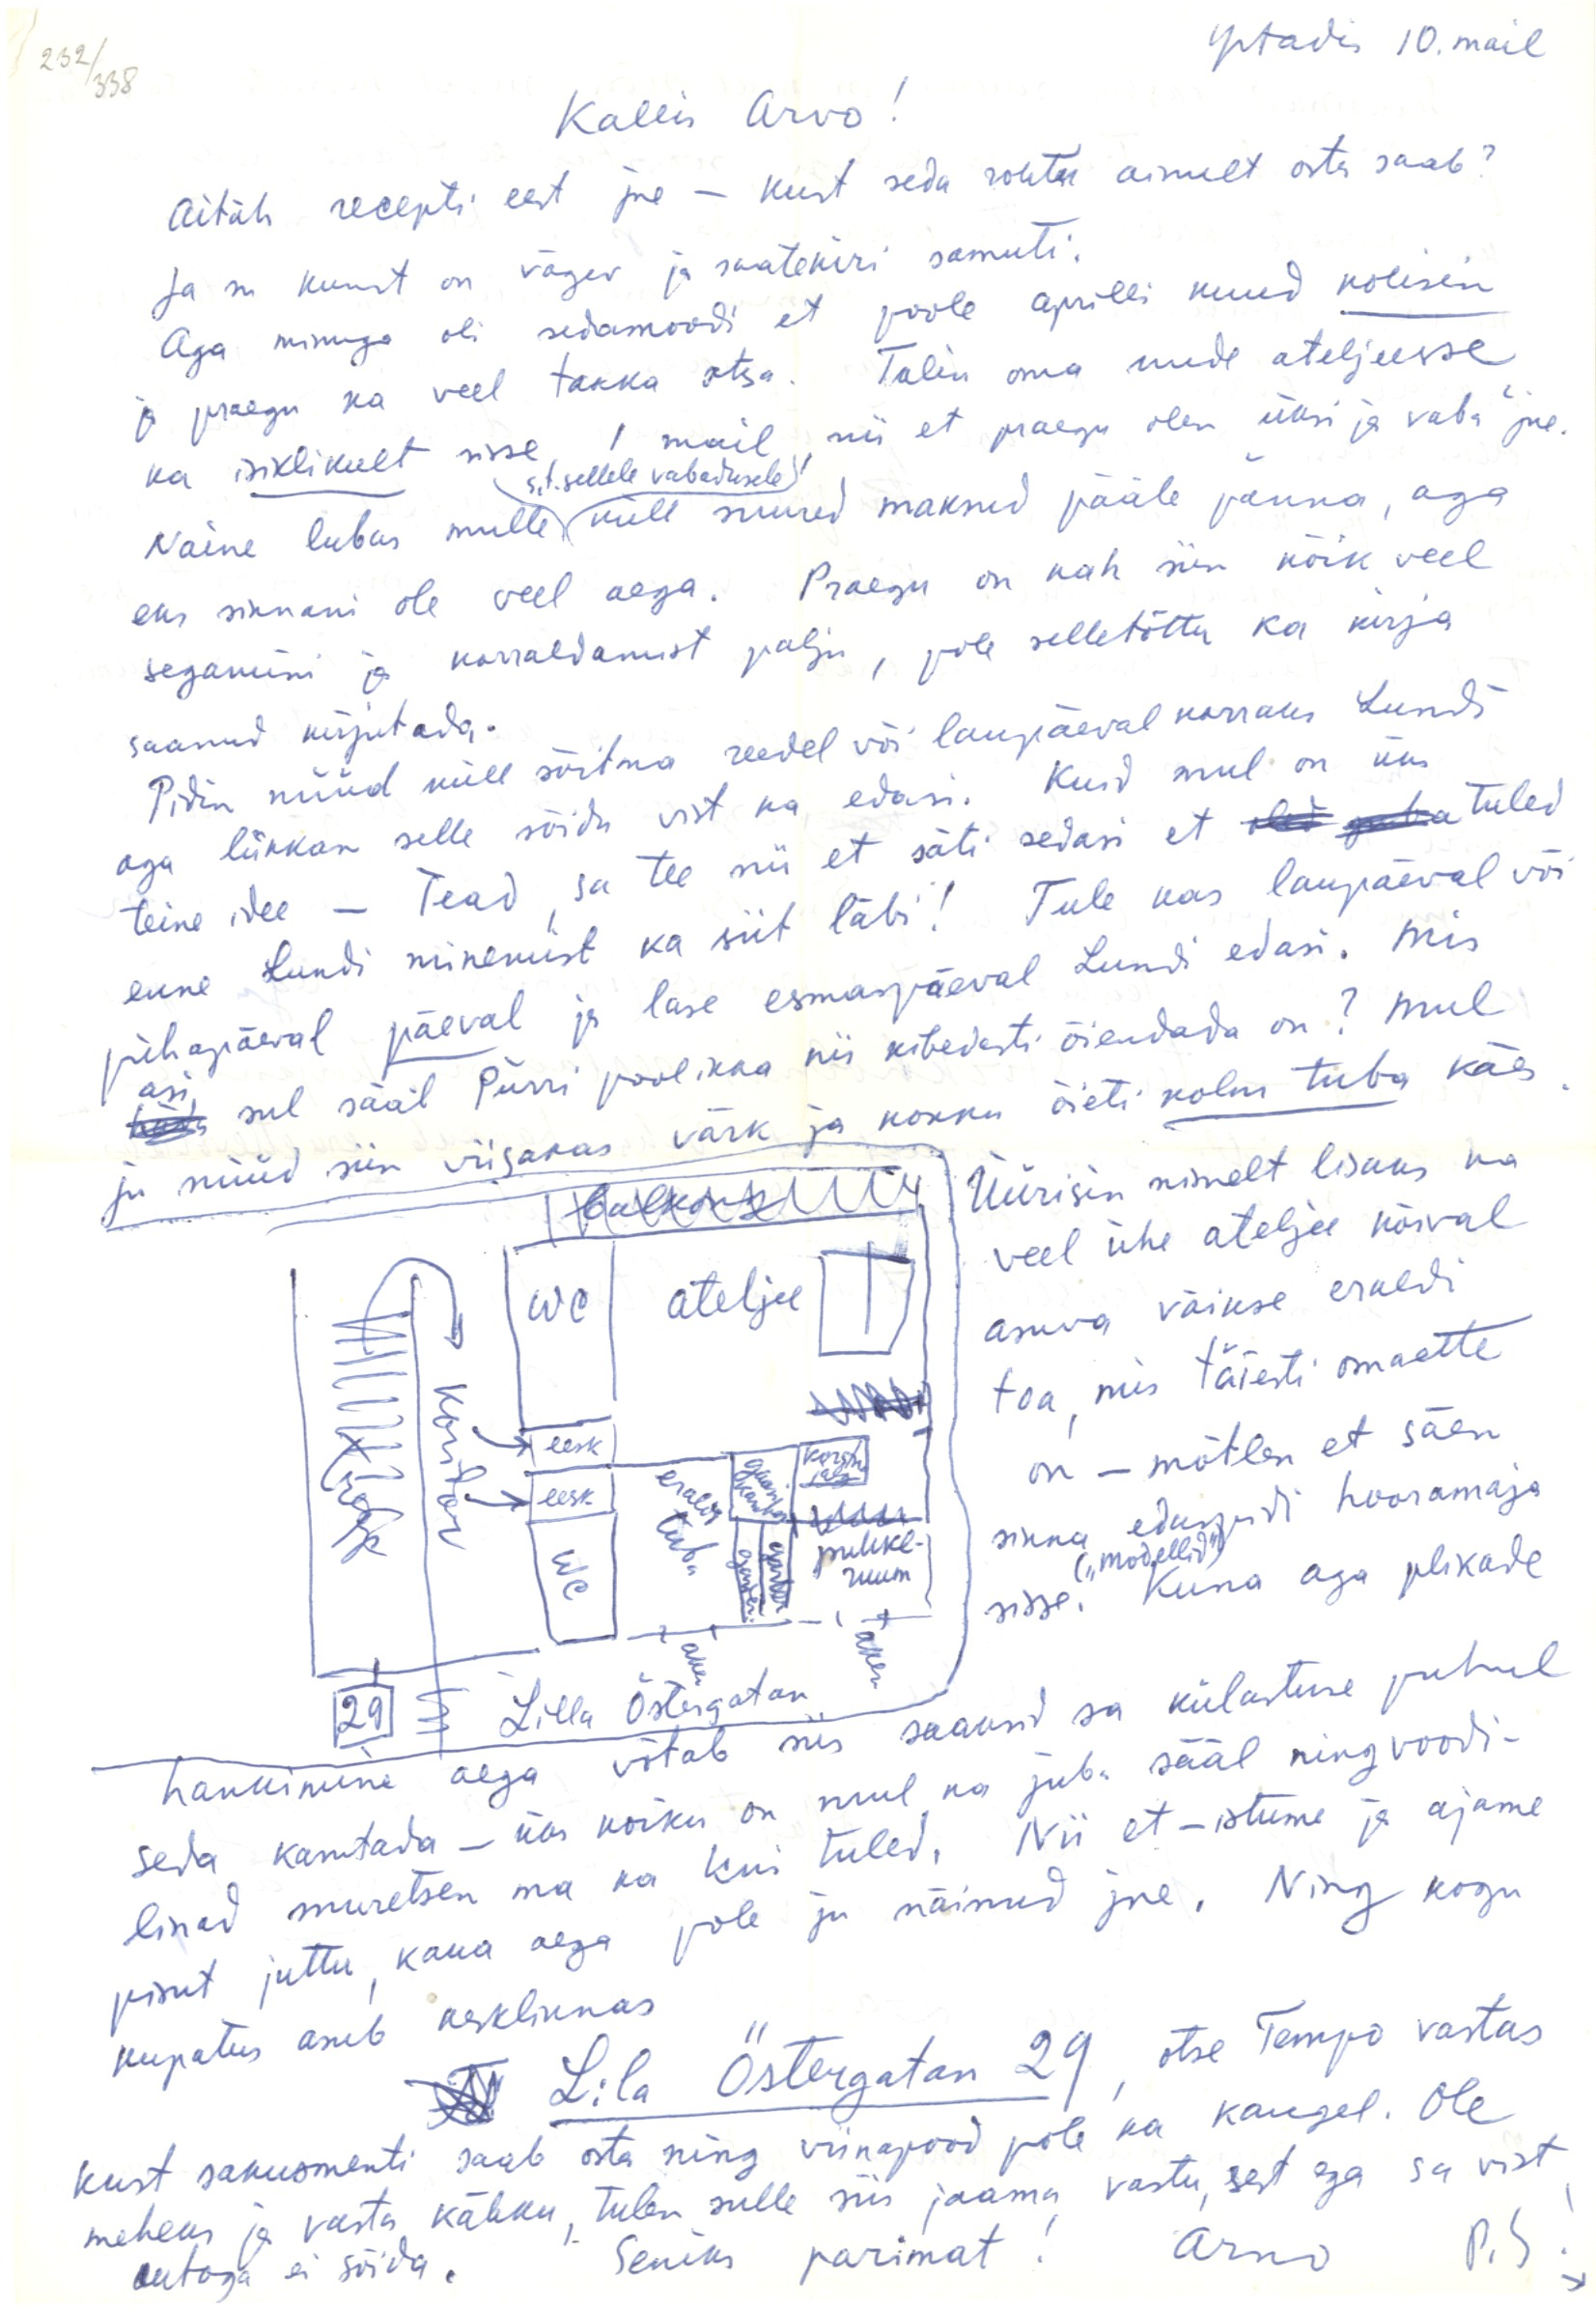 232/338
Ystadis 10. mail
Kallis Arvo!
Aitäh recepti eest jne – kust seda rohtu ainult osta saab?
Ja su kunst on vägev ja saatekiri samuti.
Aga minuga oli sedamoodi et poole aprilli kuud kolisin
ja praegu ka veel takka otsa. Tulin oma uude ateljeesse
ka isiklikult sisse, 1 mail, nii et praegu olen üksi ja vaba" jne.
s.t. sellele vabadusele!
Naine lubas mulle küll suured maksud pääle panna, aga
eks sinnani ole veel aega. Praegu on kah siin kõik veel
segamini ja korraldamist palju, pole selletõttu ka kirja
saanud kirjutada.
Pidin nüüd küll sõitma reedel või laupäeval korraks Lundi
aga lükkan selle sõidu vist ka edasi. Kuid mul on üks
teine idee – Tead, sa tee nii et säti sedasi et tuled
enne Lundi minemist ka siit läbi! Tule kas laupäeval või
pühapäeval päeval ja lase esmaspäeval Lundi edasi. Mis
asi sul sääl Pürri poolikka nii kibedasti õiendada on? Mul
ju nüüd siin viisakas värk ja kokku õieti kolm tuba käes.
Üürisin nimelt lisaks ka
veel ühe ateljee kõrval
asuva väikse eraldi
toa, mis täiesti omaette
on – mõtlen et säen
sinna edaspidi hooramaja
("modellid")
sisse. Kuna aga plikade
balkong
WC
ateljee
trepp
Koridor
eesk
eesk.
WC
eraldi
tuba
korstn
jalg
puhke-
ruum
aken
aken
29
Lilla Östergatan
hankimine aega võtab siis saaksid sa külastuse puhul
seda kasutada – üks koiku on mul ka juba sääl ning voodi-
linad muretsen ma ka kui tuled. Nii et – istume ja ajame
pisut juttu, kaua aega pole ju näinud jne. Ning kogu
kupatus asub kesklinnas
Lila Östergatan 29, otse Tempo vastas
kust sakusmenti saab osta ning viinapood pole ka kaugel. Ole
meheks ja vasta kähku, tulen sulle siis jaama vastu, sest ega sa vist
autoga ei sõida. Seniks parimat! Arno P.S!